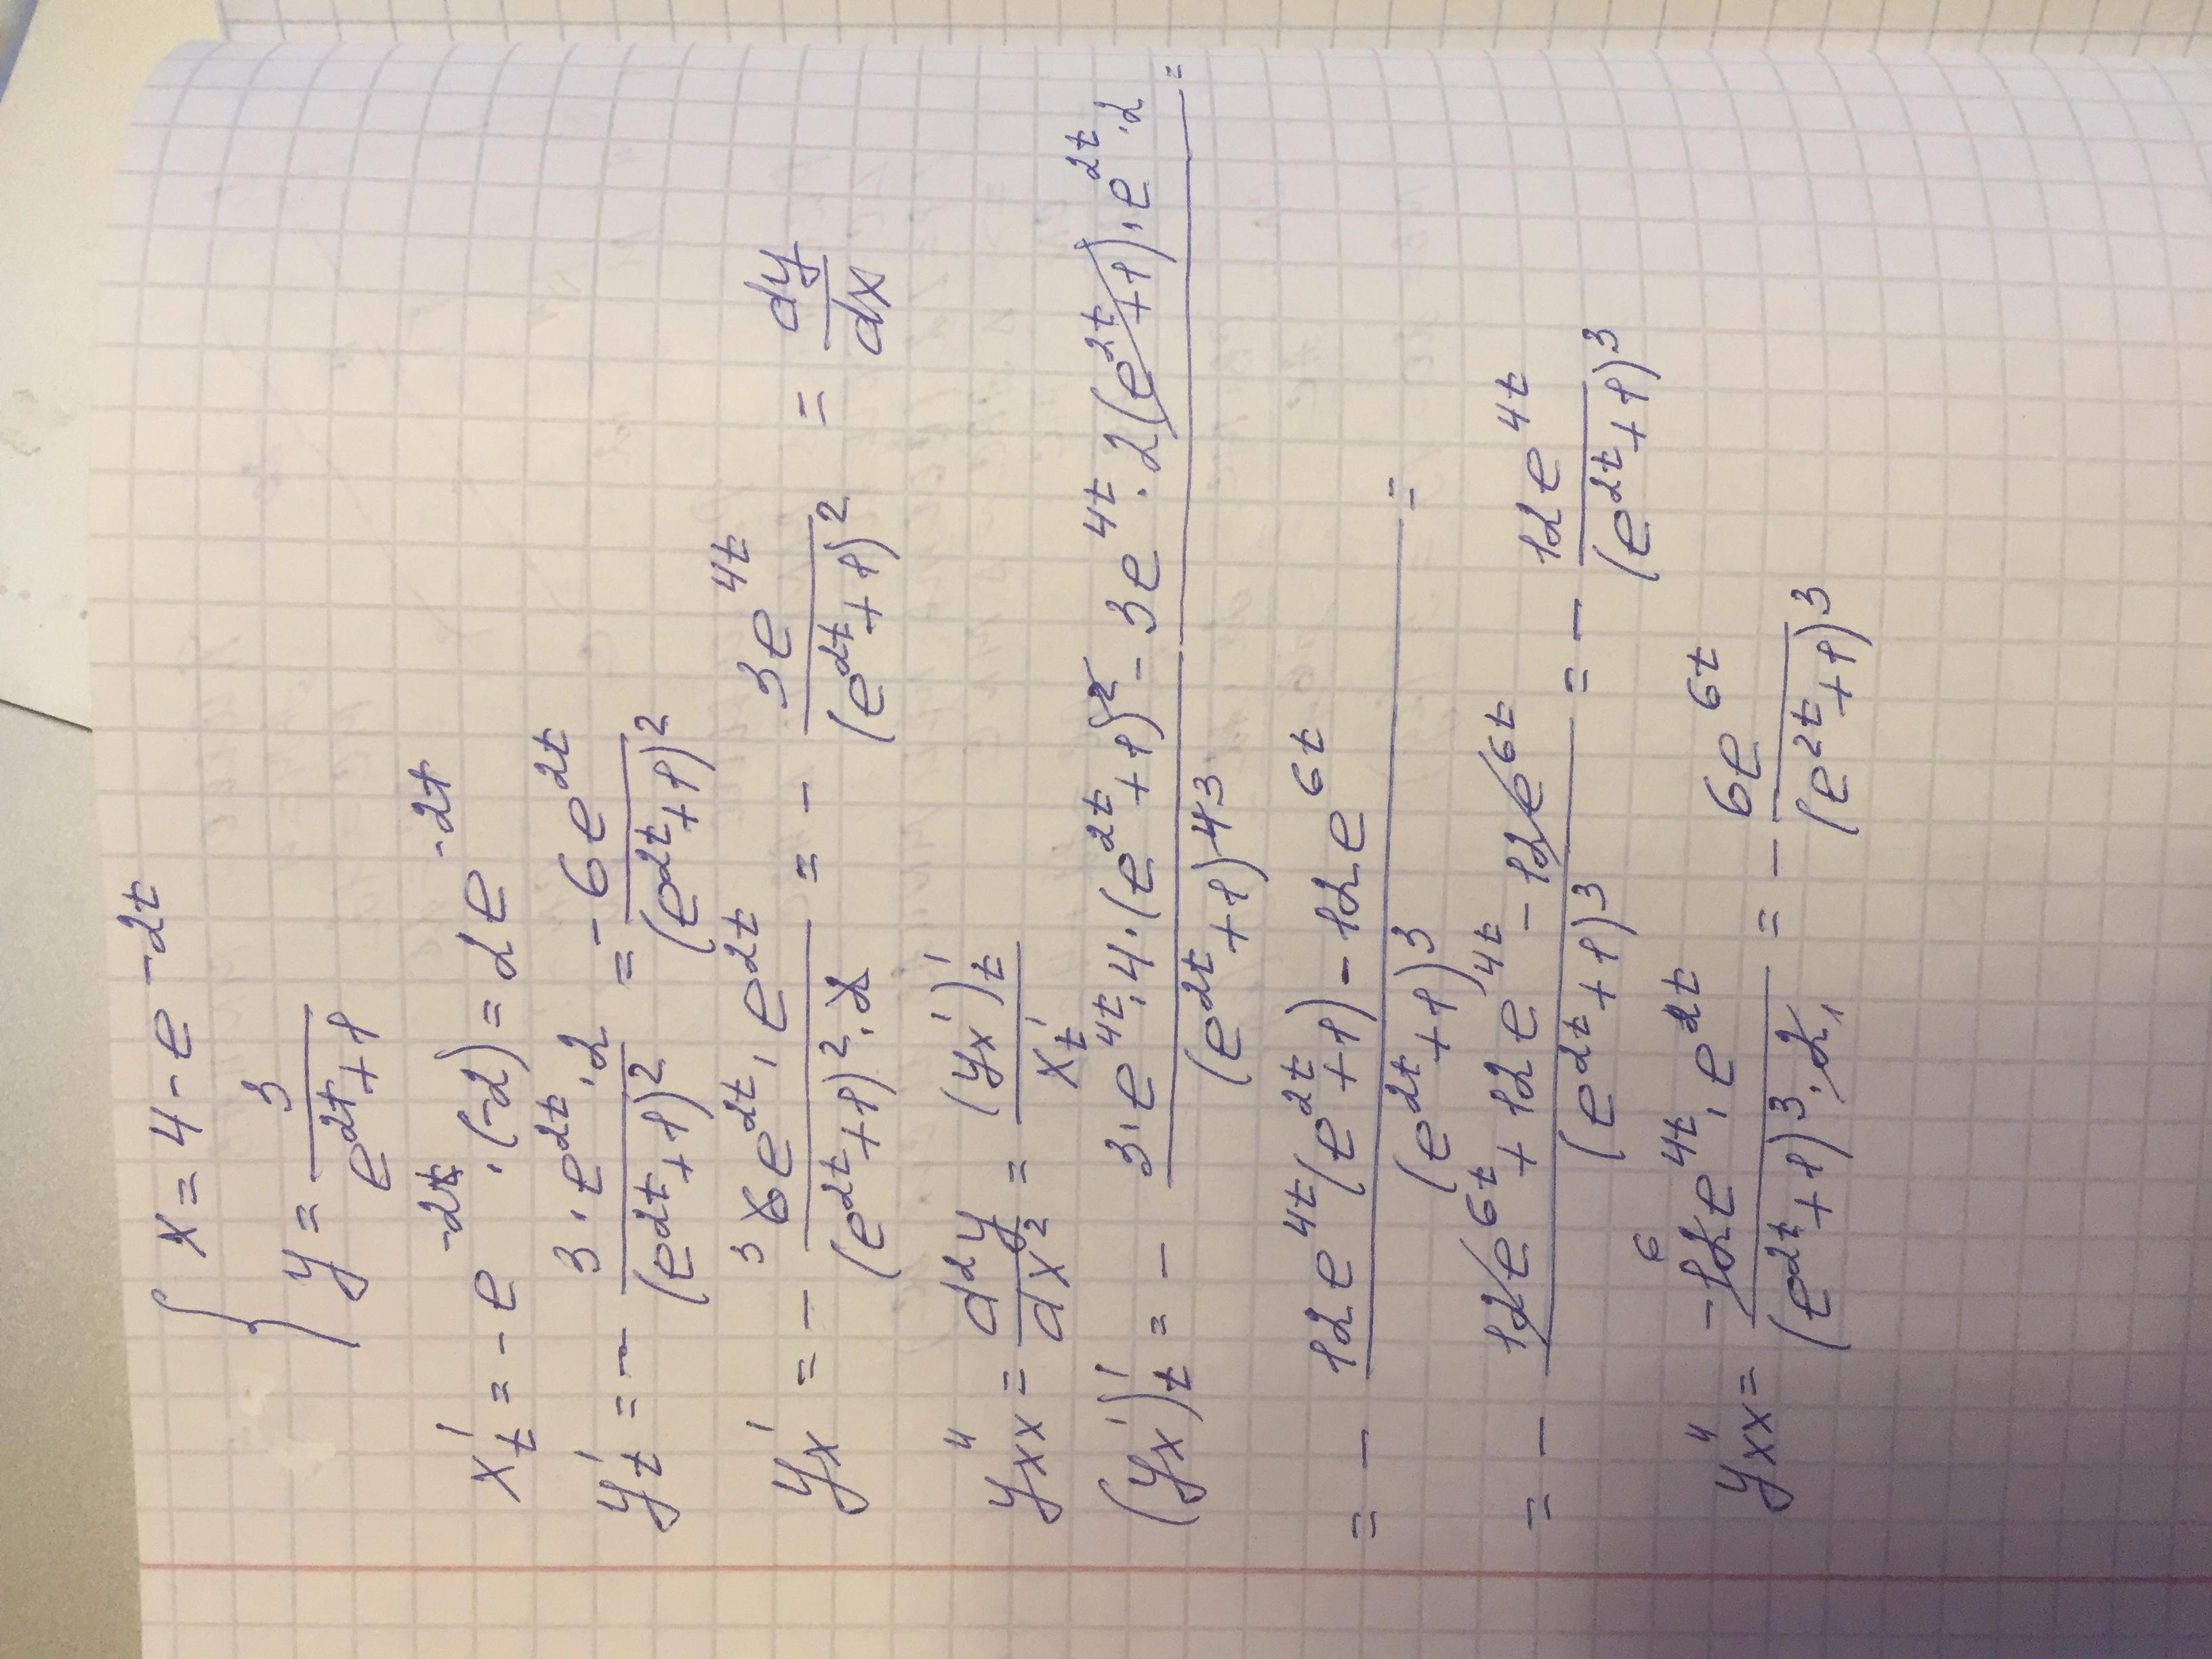 { x = 4 - e^{-2t}
y = 3/(e^{2t}+1)
x'_t = -e^{-2t}·(-2) = 2e^{-2t}
y'_t = - (3·e^{2t}·2)/(e^{2t}+1)^2 = - (6e^{2t})/(e^{2t}+1)^2
y'_x = - (6e^{2t}·e^{2t})/((e^{2t}+1)^2·2) = - (3e^{4t})/(e^{2t}+1)^2 = dy/dx
y''_{xx} = d^2y/dx^2 = (y'_x)'_t/x'_t
(y'_x)'_t = - (3·e^{4t}·4·(e^{2t}+1)^2 - 3e^{4t}·2(e^{2t}+1)·e^{2t}·2)/(e^{2t}+1)^{4 3} =
= - (12e^{4t}(e^{2t}+1) - 12e^{6t})/(e^{2t}+1)^3 =
= - (12e^{6t} + 12e^{4t} - 12e^{6t})/(e^{2t}+1)^3 = - (12e^{4t})/(e^{2t}+1)^3
y''_{xx} = (-12e^{4t}·e^{2t})/((e^{2t}+1)^3·2) = - (6e^{6t})/(e^{2t}+1)^3